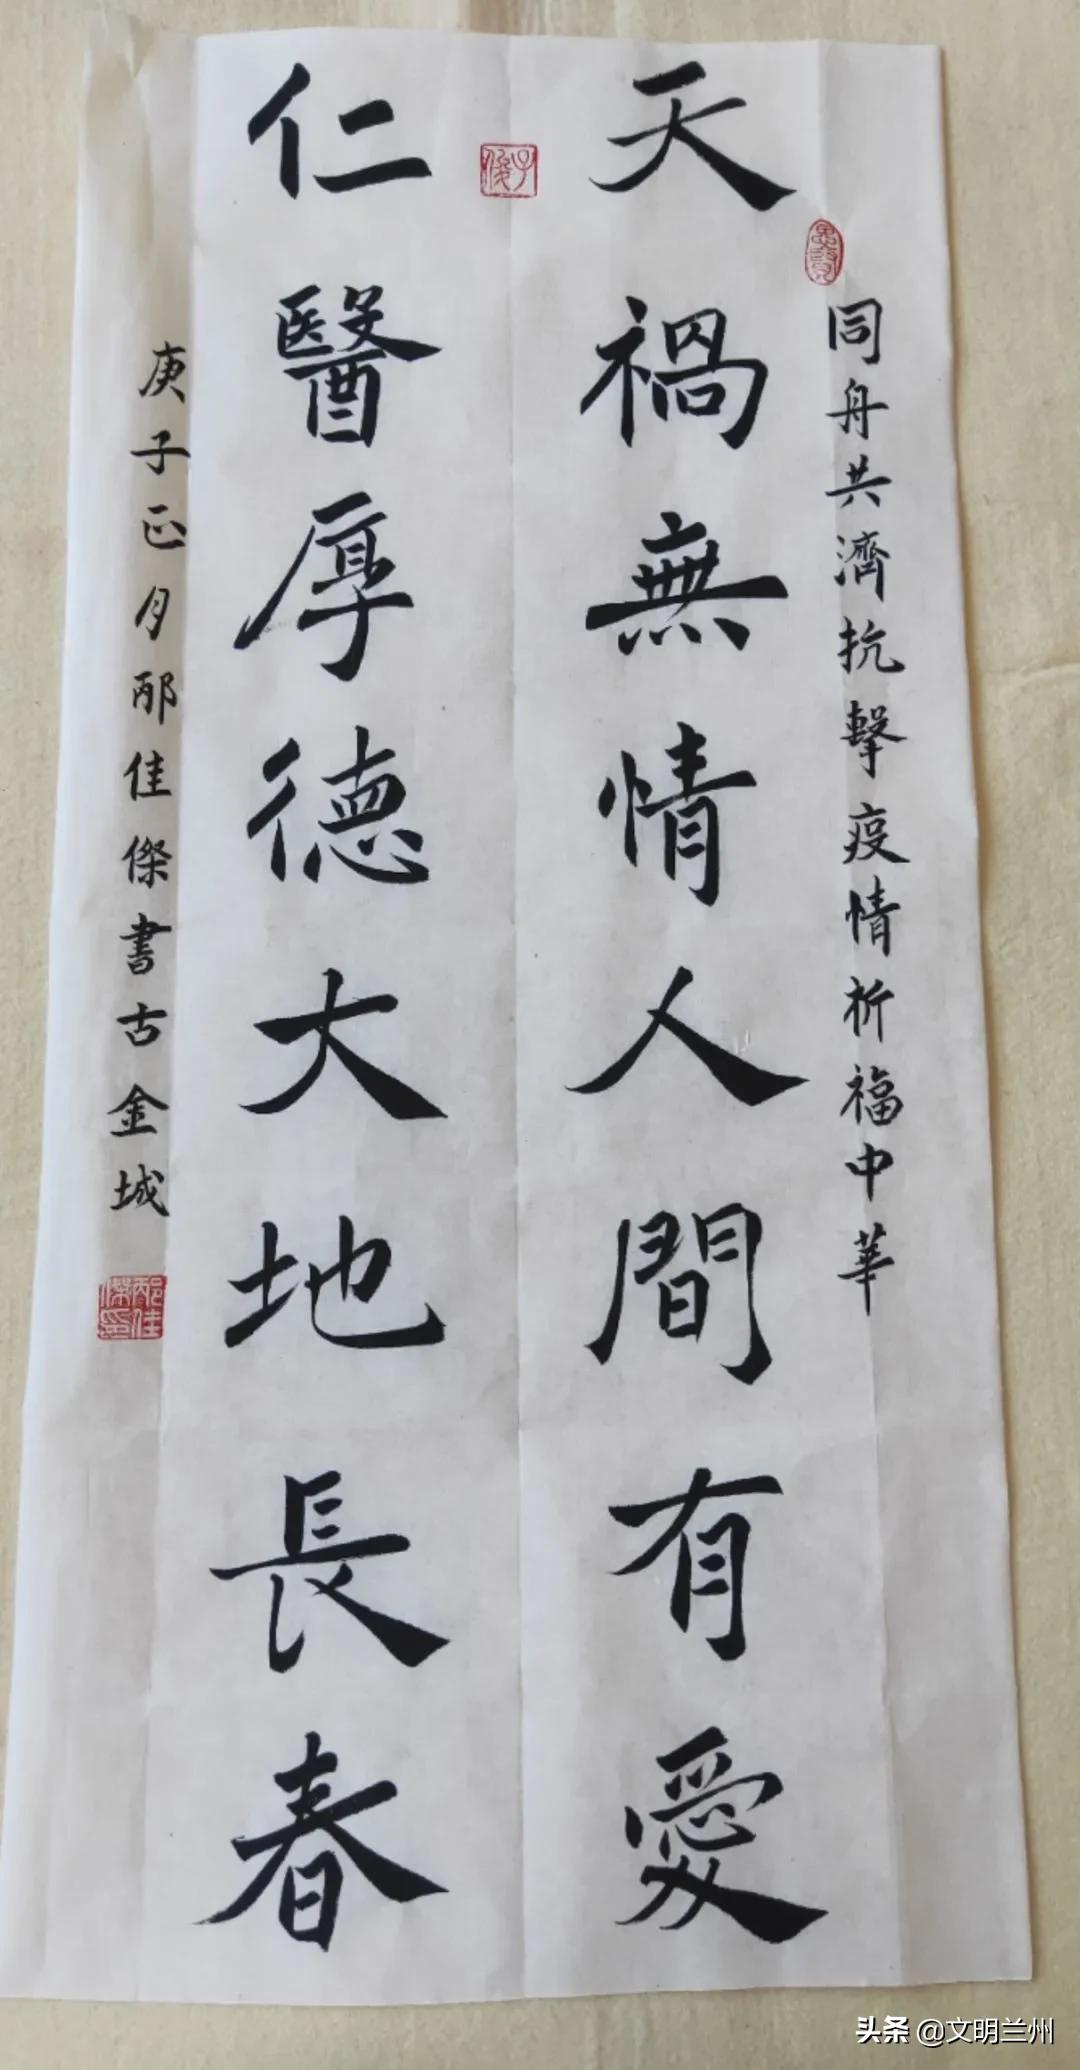 同舟共濟抗擊疫情祈福中華
天禍無情人間有愛
仁醫厚德大地長春
庚子正月邴佳傑書古金城
邴佳傑印
头条 @文明兰州